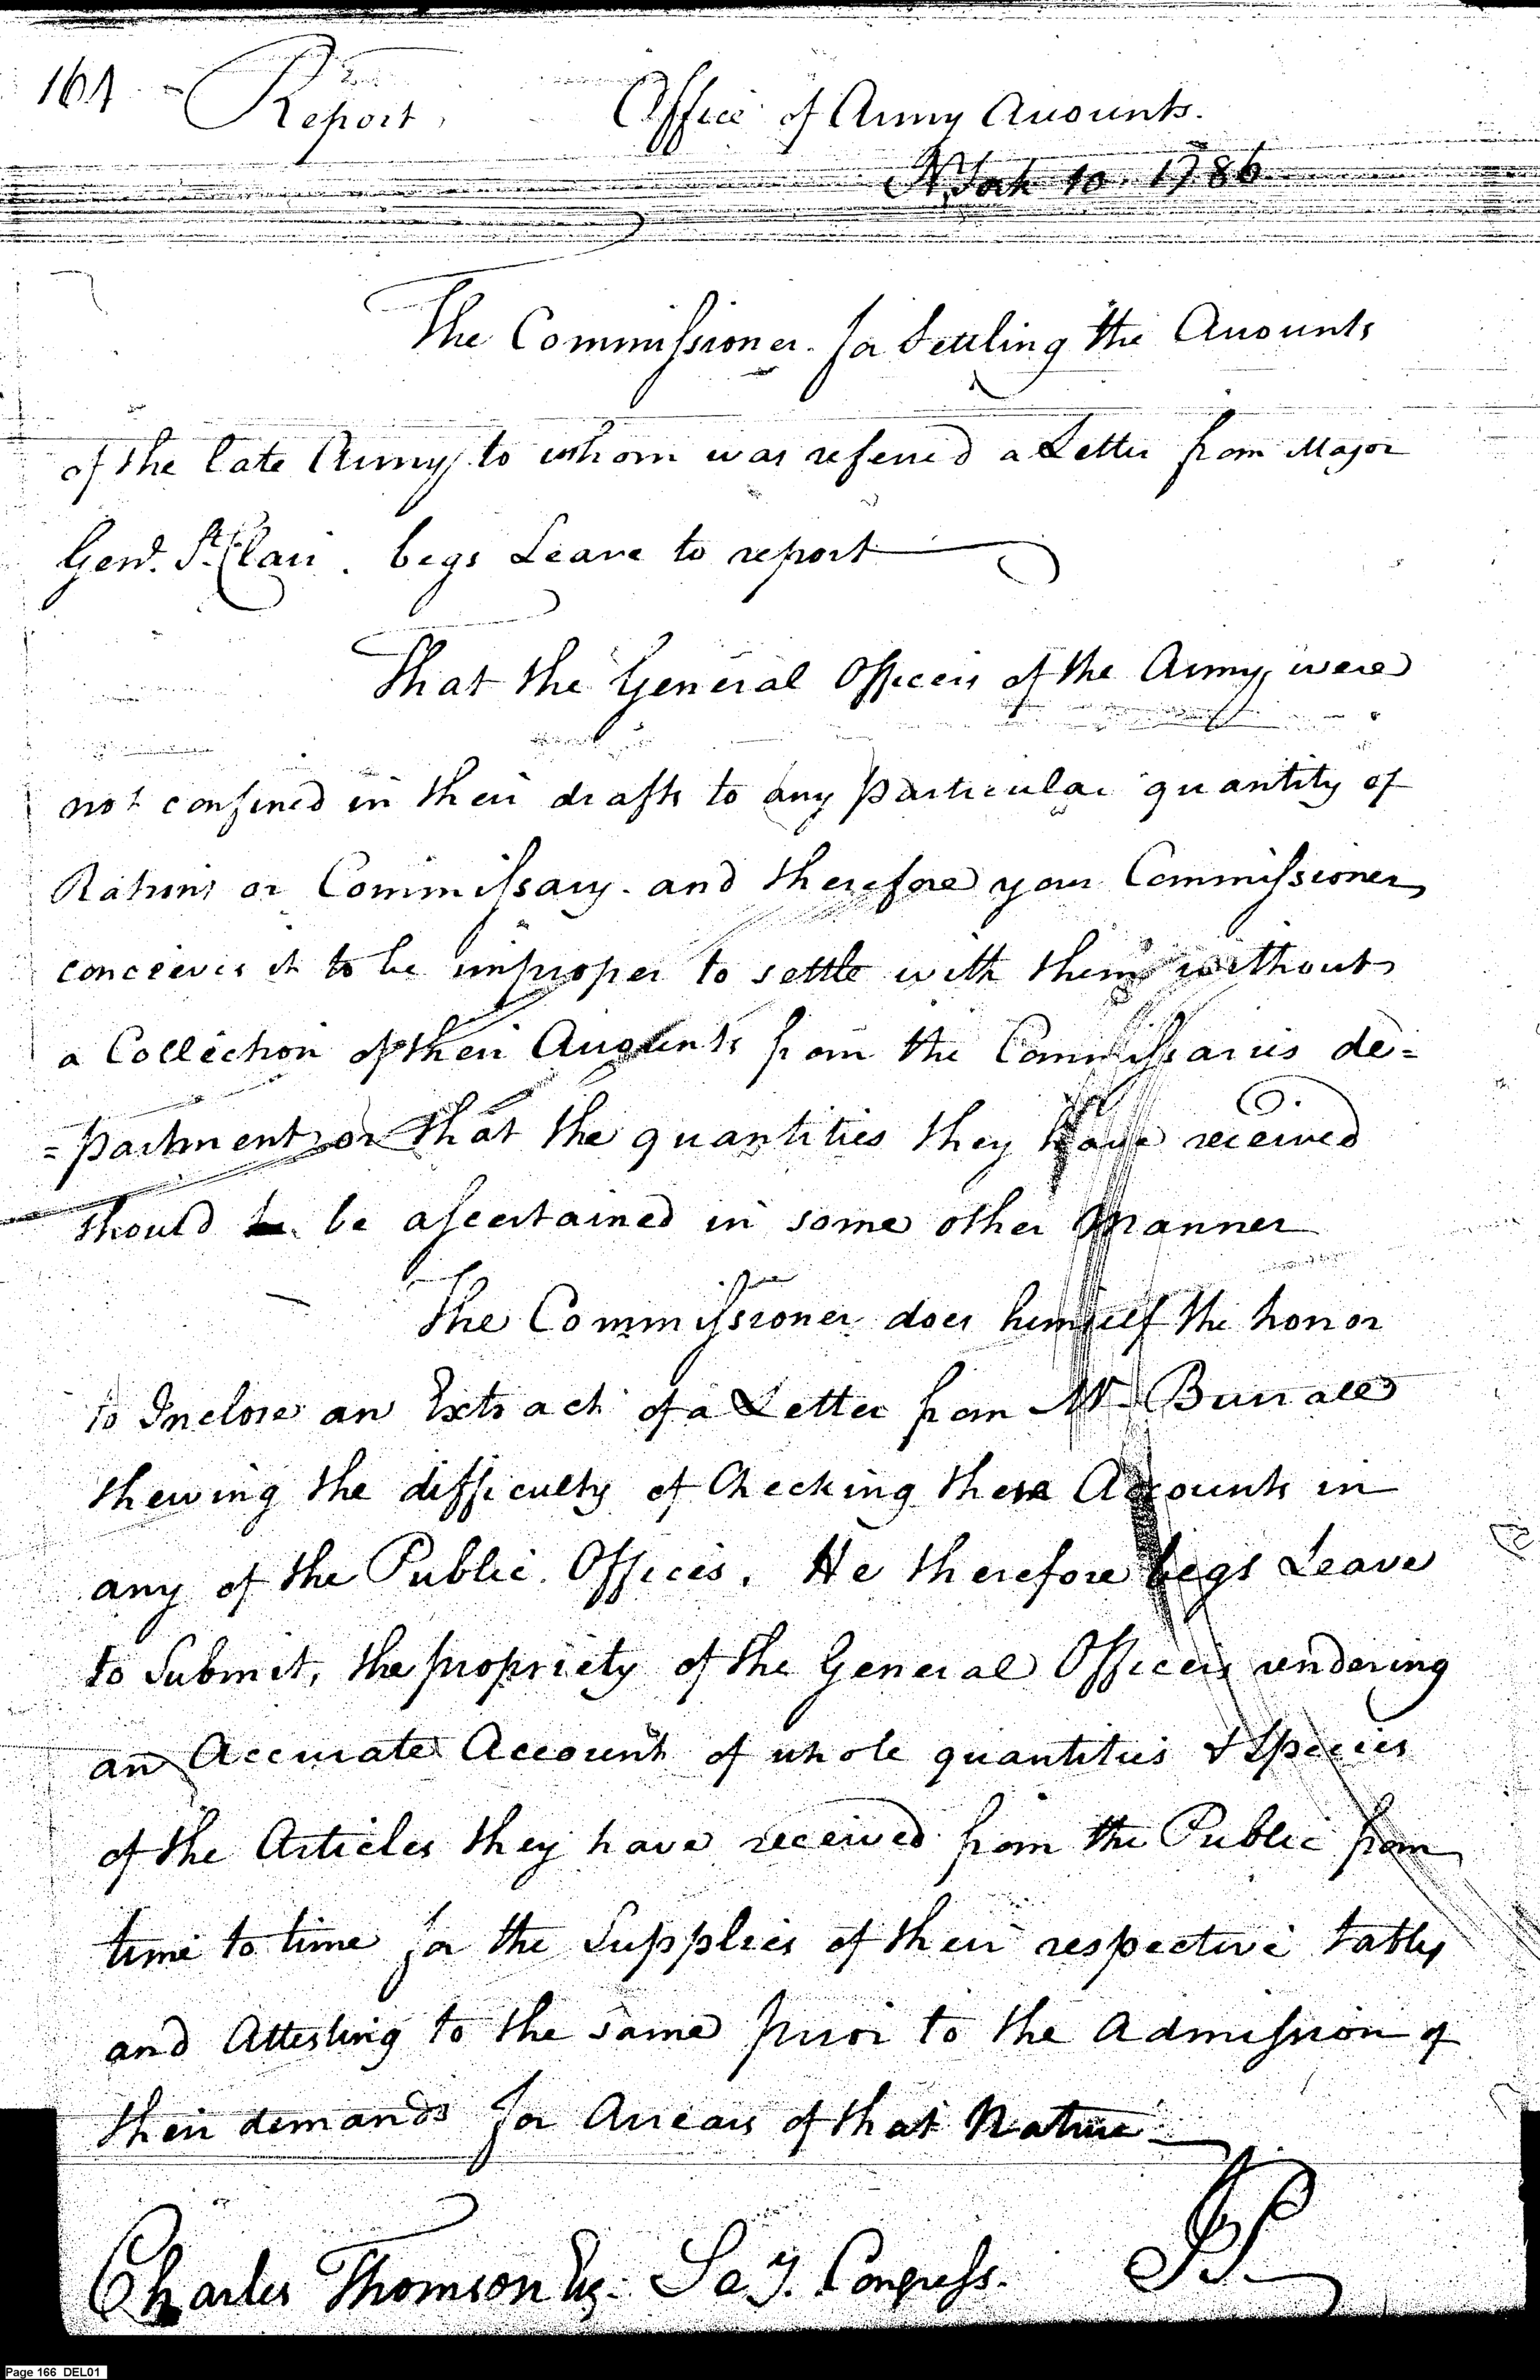 164 Report, Office of Army Accounts.
N York 10. 1786
The Commissioner for Settling the Accounts
of the late Army, to whom was referred a Letter from Major
Genl. St. Clair. begs Leave to report
That the General Officers of the Army, were
not confined in their drafts to any particular quantity of
Rations or Commissary. and therefore your Commissioner
conceives it to be improper to settle with them without
a Collection of their Accounts from the Commissaries de=
=partment, or that the quantities they have received
should be ascertained in some other Manner
The Commissioner does himself the honor
to Inclose an Extract of a Letter from Mr. Burrall
shewing the difficulty of Checking these Accounts in
any of the Public Offices. He therefore begs Leave
to Submit, the propriety of the General Officers rendering
an Accurate Account of whole quantities & Species
of the Articles they have received from the Public from
time to time for the Supplies of their respective tables
and Attesting to the same prior to the Admission of
their demands for Arrears of that Nature
Charles Thomson Esq. Secy. Congress. JP
Page 166 DEL01